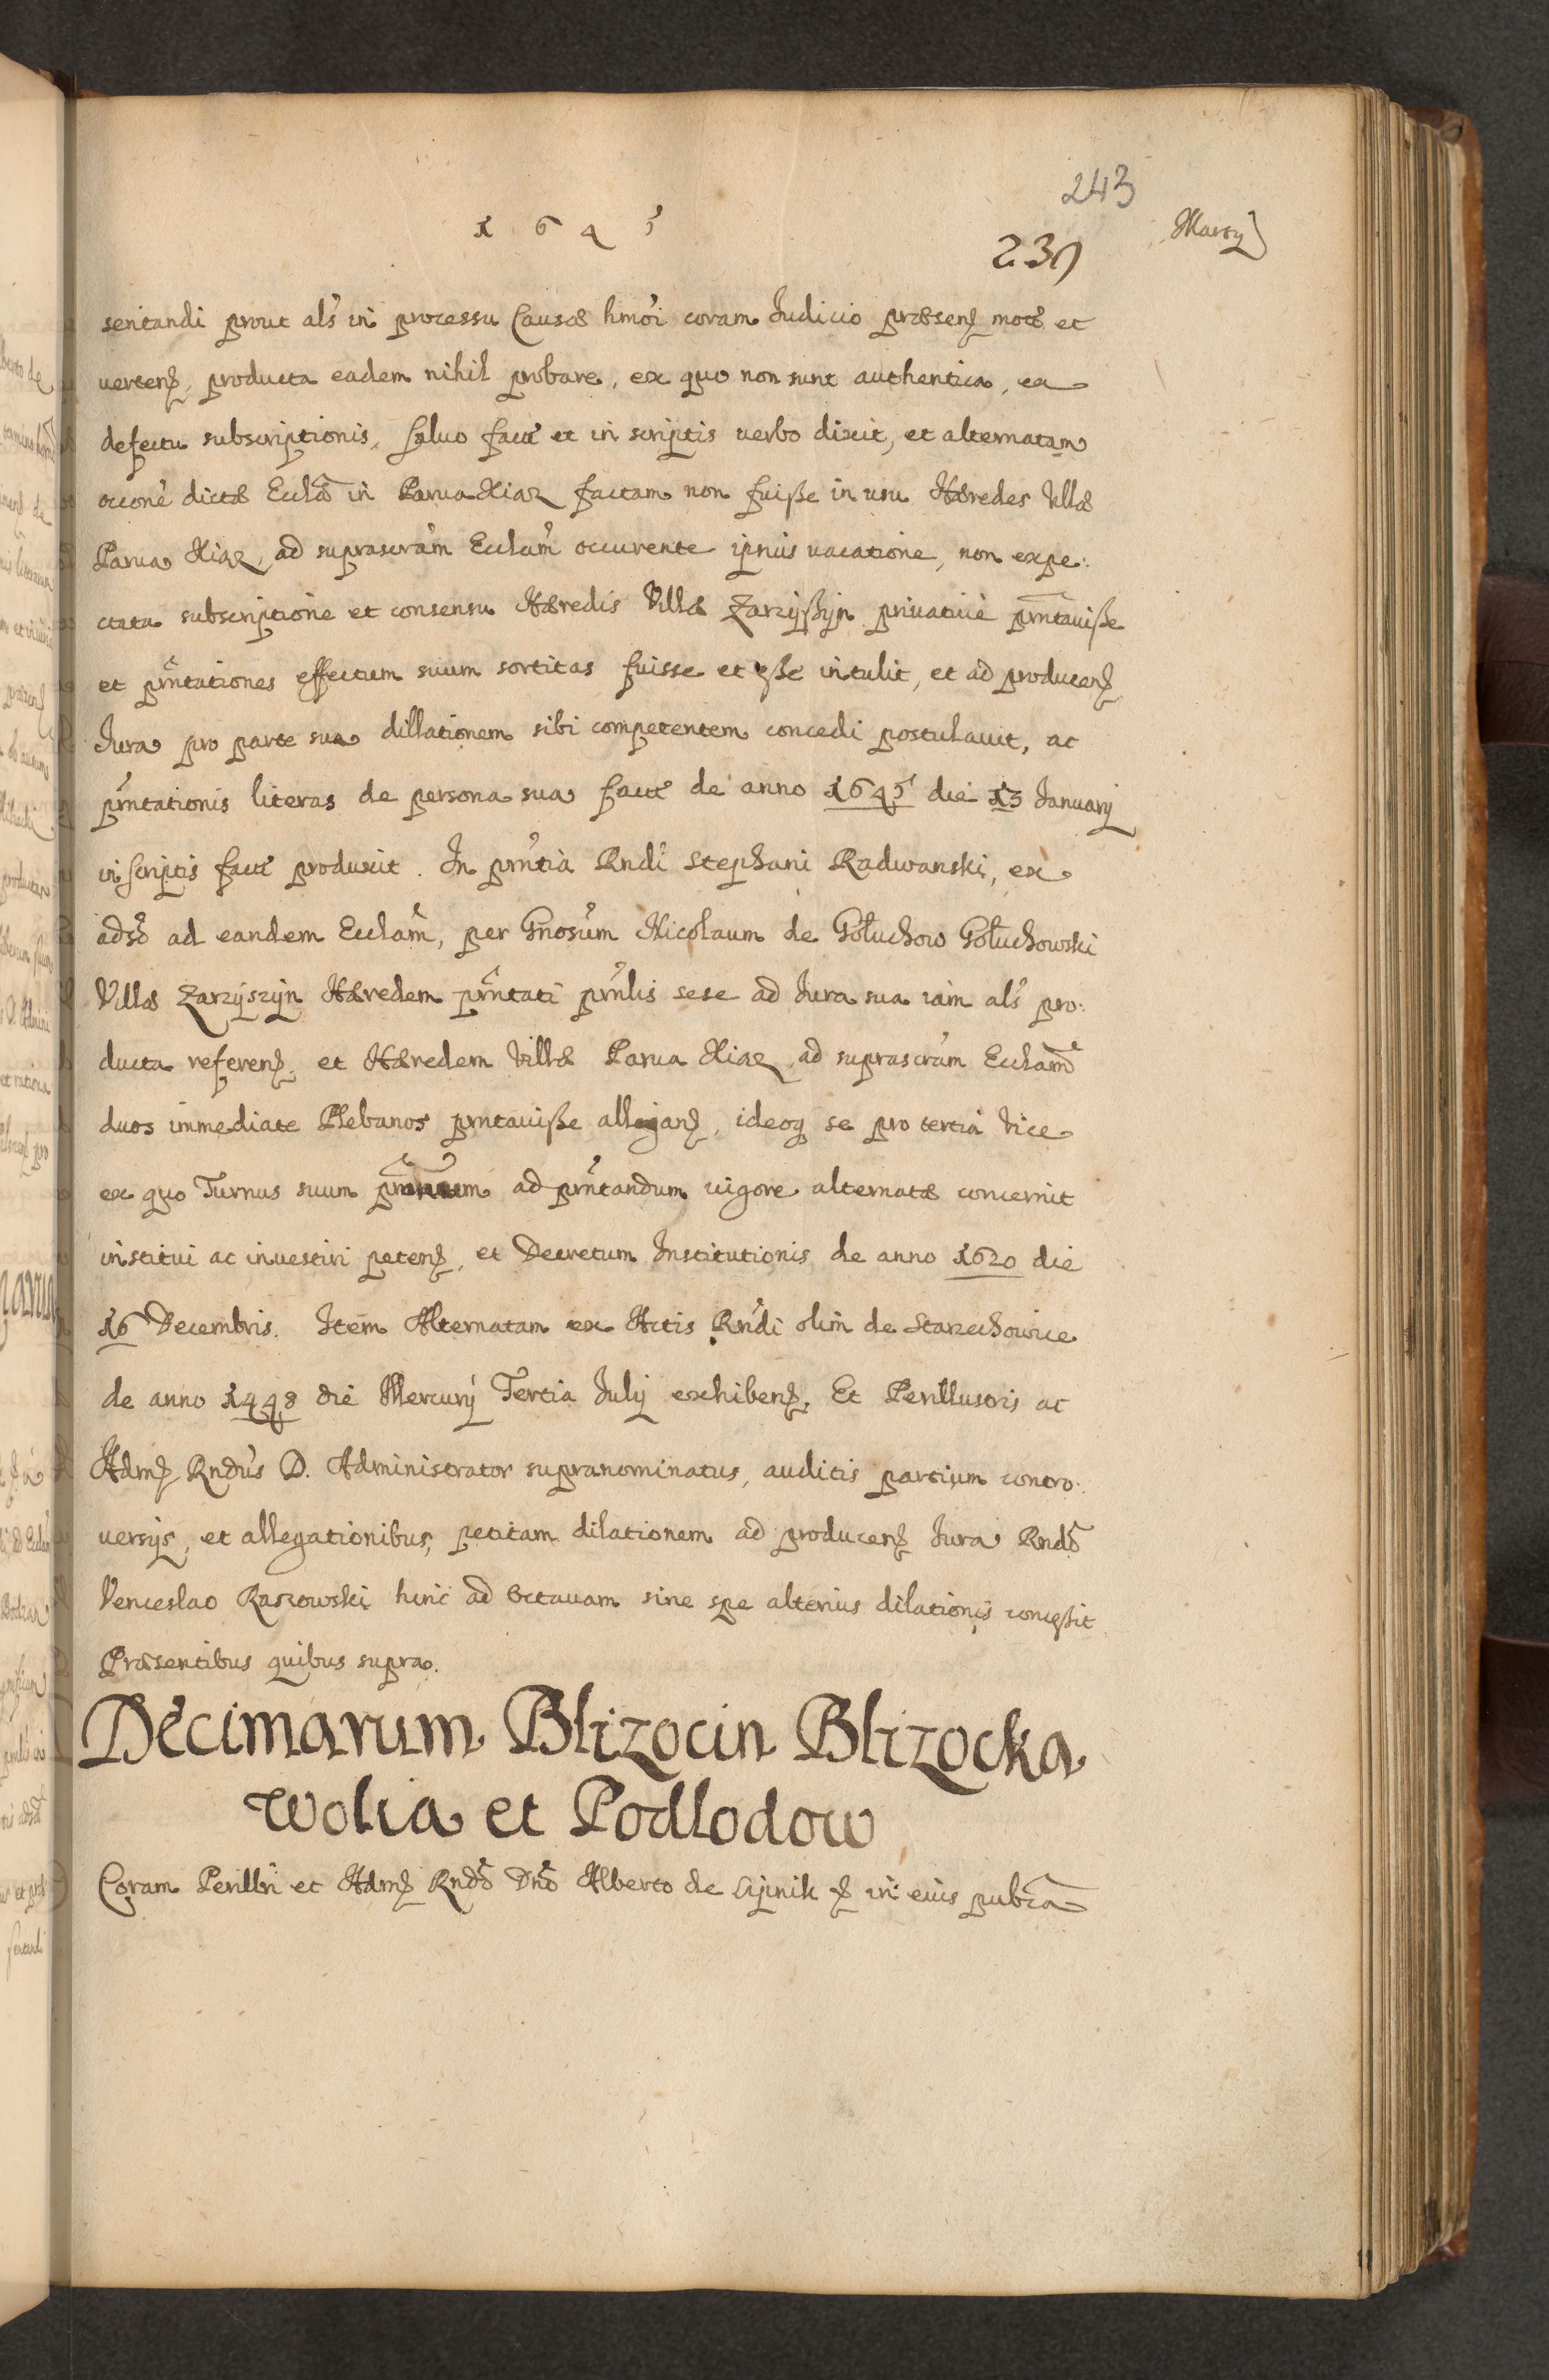 243
1645
239
Martij
sentandi prout als in processu Causæ hmoi coram Iudicio præsen. motæ et
verten. producta eadem nihil probare, ex quo non sunt authentica, ea
defectu subscriptionis, saluo facit et in scriptis verbo dixit, et alternatam
occone dictæ Ecclæ in Parua Xiaz factam non fuiße in usu Hæredes Villæ
Parua Xiaz, ad suprascram Ecclam occurente ipsius vacatione, non expe:
ctata subscriptione et consensu Hæredis Villæ Zarzÿßÿn priuatiue prntauiße
et prntationes effectum suum sortitas fuisse et eße intulit, et ad producen.
Iura pro parte sua dillationem sibi competentem concedi postulauit, ac
prntationis literas de persona sua fact de anno 1645 die 13 Ianuarij
in scriptis fact produxit. In prntia Rndi Stephani Radwanski, ex
adso ad eandem Ecclam, per Gnosum Nicolaum de Gołuchow Gołuchowski
Villæ Zarzÿszÿn Hæredem prntati prnlis sese ad Iura sua iam als pro:
ducta referen. et Hæredem Villæ Parua Xiaz, ad suprascram Ecclam
duos immediate Plebanos prntauiße allegan., ideoq se pro tertia vice
ex quo Turnus suum ad prntandum vigore alternatæ concernit
institui ac inuestiri peten., et Decretum Institutionis de anno 1620 die
16 Decembris. Item Alternatam ex Actis Rndi olim de Starzechowice
de anno 1448 die Mercurij Tertia Iulij exhiben. Et Perillustris ac
Adm. Rndus D. Administrator supranominatus, auditis partium contro:
versijs, et allegationibus, petitam dilationem ad producen. Iura Rndo
Venceslao Raszowski hinc ad octauam sine spe alterius dilationis conceßit
Præsentibus quibus supra.
Decimarum Blizocin Blizocka
Wolia et Podlodow
Coram Perillri et Adm. Rndo Dno Alberto de Lipnik in eius pubca